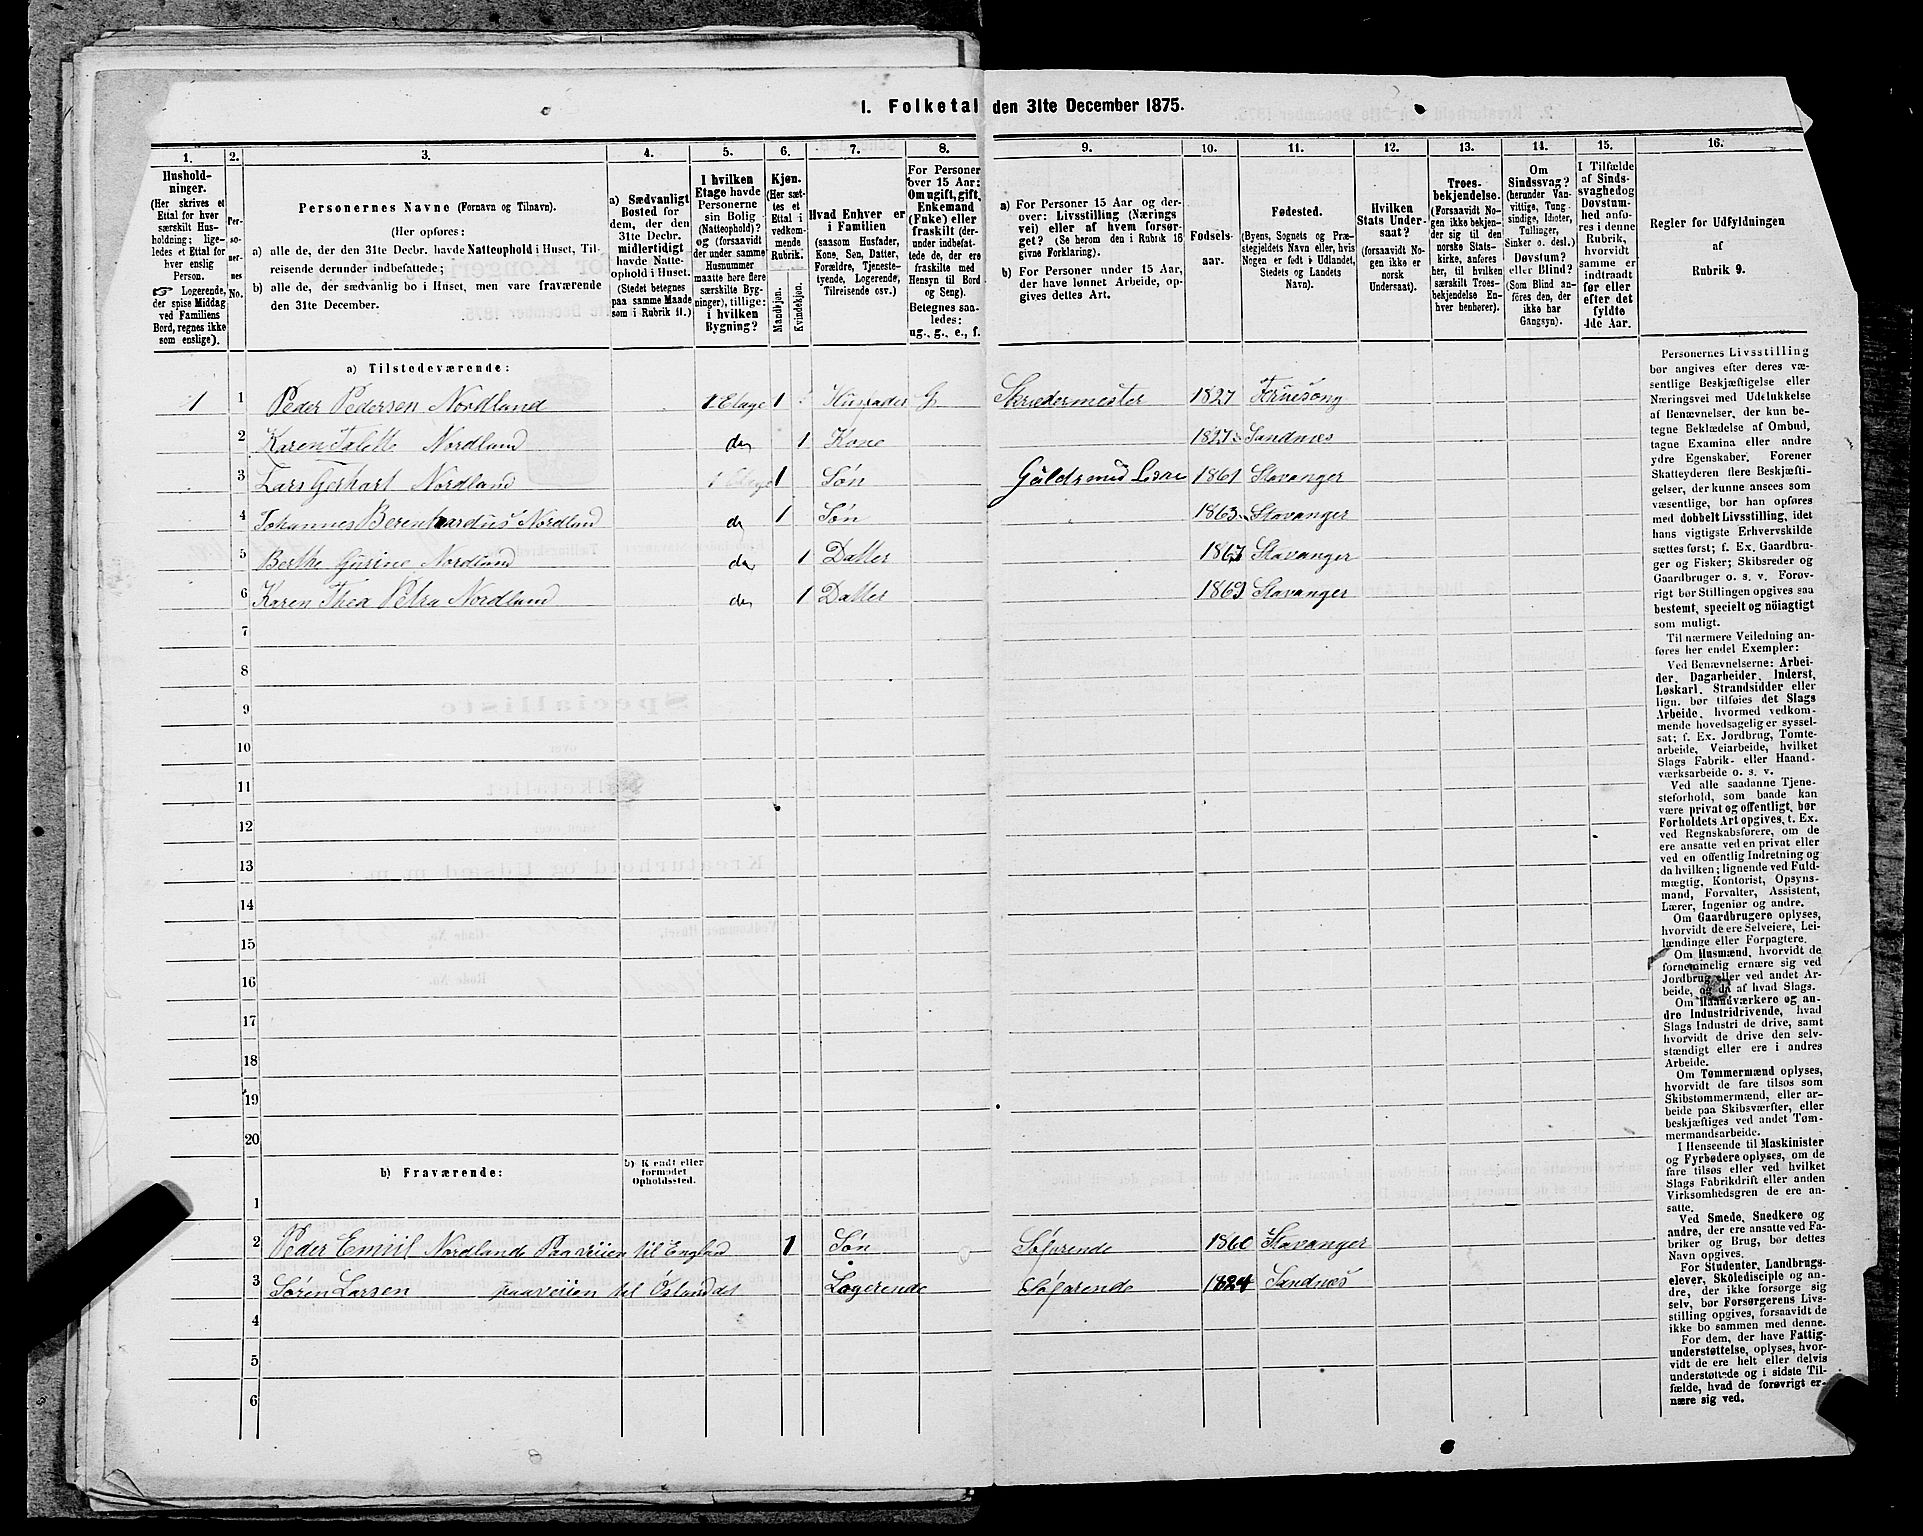 1. Folketal den 31te December 1875.
1.
2.
3.
4.
5.
6.
7.
8.
9.
10.
11.
12.
13.
14.
15.
16.
Hushold-
ninger.
(Her skrives et
Ettal for hver
særskilt Hus-
holdning; lige-
ledes et Ettal for
hver enslig
Person.
☞ Logerende,
der spise Middag
ved Familiens
Bord, regnes ikke
som enslige).
Per-
so-
ner-
nes
No.
Personernes Navne (Fornavn og Tilnavn).
(Her opføres:
a) alle de, der den 31te Decbr. havde Natteophold i Huset, Til-
reisende derunder indbefattede;
b) alle de, der sædvanlig bo i Huset, men vare fraværende
den 31te December.
a) Sædvanligt
Bosted for
dem, der den
31te Decbr.
midlertidigt
havde Natte-
ophold i Huset.
(Stedet betegnes
paa samme Maade
som i Rubrik 11.)
I hvilken
Etage havde
Personerne
sin Bolig
(Natteophold)?
og (forsaavidt
der under samme
Husnummer
maatte høre flere
særskilte Byg-
ninger), tillige:
i hvilken
Bygning?
Kjøn.
(Her sæt-
tes et
Ettal i
vedkom-
mende
Rubrik.
Mandkjøn.
Kvindekjøn.
Hvad Enhver er
i Familien
(saasom Husfader,
Kone, Søn, Datter,
Forældre, Tjeneste-
tyende, Logerende,
Tilreisende osv.)
For Personer
over 15 Aar:
Om ugift, gift,
Enkemand
(Enke) eller
fraskilt (der-
under indbefat-
tede de, der ere
fraskilte med
Hensyn til Bord
og Seng).
Betegnes saa-
ledes:
ug., g., e., f.
a) For Personer 15 Aar og der-
over: Livsstilling (Nærings
vei) eller af hvem forsør-
get? (Se herom den i Rubrik 16
givne Forklaring).
b) For Personer under 15 Aar,
der have lønnet Arbeide, op-
gives dettes Art.
Fødsels-
aar.
Fødested.
(Byens, Sognets og Præ-
stegjeldets Navn eller, hvis
Nogen er født i Udlandet,
Stedets og Landets
Navn).
Hvilken
Stats Under-
saat?
(forsaavidt No-
gen ikke er
norsk
Undersaat).
Troes-
bekjendelse.
(Forsaavidt No-
gen ikke bekjen-
der sig til den
norske Stats-
kirke, anføres
her, til hvilken
særskilt Troes-
bekjendelse En-
hver henhører).
Om
Sindssvag?
(herunder Van-
vittige, Tung-
sindige, Idioter,
Tullinger,
Sinker o. desl.)
Døvstum?
eller Blind?
(Som Blind an-
føres den, der
ikke har
Gangsyn).
I Tilfælde
af Sinds-
svaghed og
Døvstum-
hed anfø-
res i denne
Rubrik,
hvorvidt
samme er
indtraadt
før eller
efter det
fyldte
4de Aar.
Regler for Udfyldningen
af
Rubrik 9.
a) Tilstedeværende:
1 1 Peder Pedersen Nordland 1 Etage 1 Husfader G Skrædermester 1827
2 Karen Talette Nordland do 1 Kone 1827 Sandnæs
3 Lars Gerhart Nordland 1 Etage 1 Søn Guldsmed 1861 Stavanger
4 Johannes Berenhardus Nordland do 1 Søn 1863 Stavanger
5 Berthe Gurine Nordland do 1 Datter 1867 Stavanger
6 Karen Thea Petra Nordland do 1 Datter 1869 Stavanger
7
8
9
10
11
12
13
14
15
16
17
18
19
20
b) Fraværende:
b) Kjendt eller
formodet
Opholdssted.
1
2 Peder Emiil Nordland Paa veiien til England 1 Søn Søfarende 1860 Stavanger
3 Søren Larsen paa veiien til Logerende Søfarende 1824 Sandnæs
4
5
6
Personernes Livsstilling
bør angives efter deres væ-
sentlige Beskjæftigelse eller
Næringsvei med Udelukkelse
af Benævnelser, der kun be-
tegne Beklædelse af Ombud,
tagne Examina eller andre
ydre Egenskaber. Forener
Skatteyderen flere Beskjæfti-
gelser, der kunne ansees som
væsentlige, bør han opføres
med dobbelt Livsstilling, idet
hans vigtigste Erhvervskilde
sættes først; f. Ex. Gaardbru-
ger og Fisker; Skibsreder og
Gaardbruger o. s. v. Forøv-
rigt bør Stillingen opgives saa
bestemt, specielt og nöiagtigt
som muligt.
Til nærmere Veiledning an-
føres her endel Exempler:
Ved Benævnelserne: Arbei-
der, Dagarbeider, Inderst,
Løskarl, Strandsidder eller
lign. bør tilføies det Slags
Arbeide, hvormed vedkom-
mende hovedsagelig er syssel-
sat; f. Ex. Jordbrug, Tomte-
arbeide, Veiarbeide, hvilket
Slags Fabrik- eller Haand-
værksarbeide o. s. v.
Ved alle saadanne Tjene-
steforhold, som baade kan
være privat og offentligt, bør
Forholdets Art opgives, t. Ex.
ved Regnskabsførere, om de
ere ansatte ved en privat eller
ved en offentlig Indretning og
da hvilken; lignende ved Fuld-
mægtig, Kontorist, Opsyns-
mand, Forvalter, Assistent,
Lærer, Ingeniør og andre.
Om Gaardbrugere oplyses,
hvorvidt de ere Selveiere, Lei-
lændinge eller Forpagtere.
Om Husmænd, hvorvidt de
fornemmelig ernære sig ved
Jordbrug eller ved andet Ar-
beide, og da af hvad Slags.
Om Haandværkere og an-
dre Industridrivende, hvad
Slags Industri de drive, samt
hvorvidt de drive den selv-
stændigt eller ere i andres
Arbeide.
Om Tømmermænd oplyses,
hvorvidt de fare tilsøs som
Skibstømmermænd, eller ar-
beide paa Skibsværfter, eller
beskjæftiges ved andet Tøm-
mermandsarbeide.
I Henseende til Maskinister
og Fyrbødere oplyses, om de
fare tilsøs eller ved hvilket
Slags Fabrikdrift eller anden
Virksomhedsgren de ere an-
satte.
Ved Smede, Snedkere og
andre, der ere ansatte ved Fa-
briker og Brug, bør dettes
Navn opgives.
For Studenter, Landbrugs-
elever, Skoledisciple og an-
dre, der ikke forsørge sig
selv, bør Forsørgerens Livs-
stilling opgives, forsaavidt de
ikke bo sammen med denne.
For dem, der have Fattig-
understøttelse, oplyses, hvor-
vidt de ere helt eller delvis
understøttede og i sidste Til-
fælde, hvad de forøvrigt er-
nære sig ved.